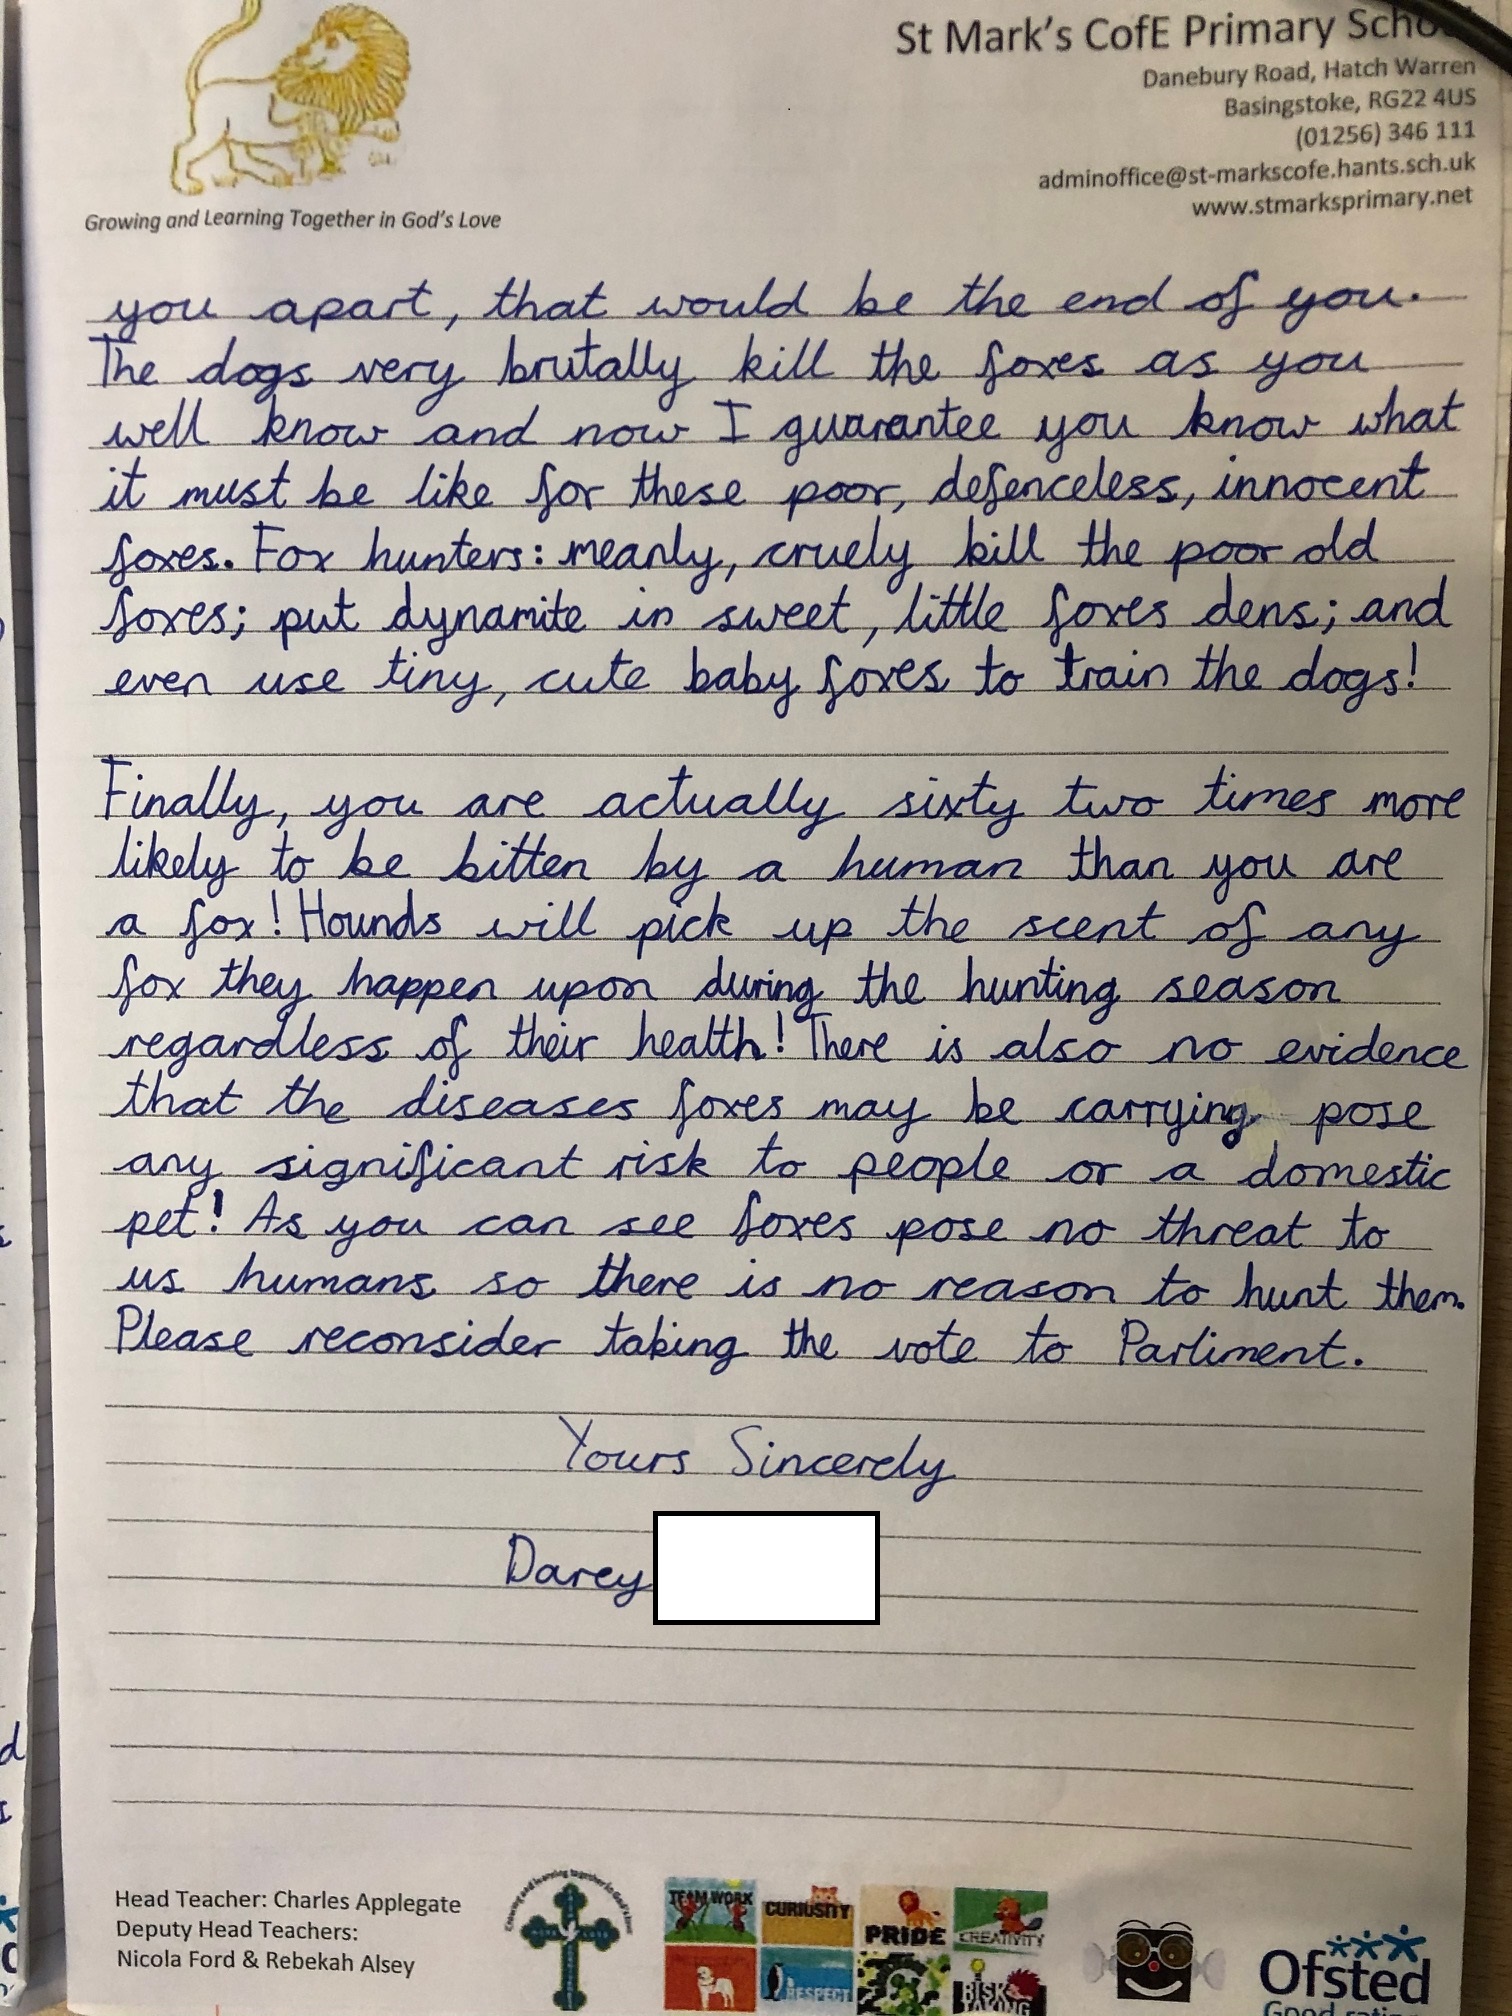 St Mark's CofE Primary School
Danebury Road, Hatch Warren
Basingstoke, RG22 4US
(01256) 346 111
adminoffice@st-markscofe.hants.sch.uk
www.stmarksprimary.net
Growing and Learning Together in God's Love
you apart, that would be the end of you.
The dogs very brutally kill the foxes as you
well know and now I guarantee you know what
it must be like for these poor, defenceless, innocent
foxes. Fox hunters: meanly, cruely kill the poor old
foxes; put dynamite in sweet, little foxes dens; and
even use tiny, cute baby foxes to train the dogs!
Finally, you are actually sixty two times more
likely to be bitten by a human than you are
a fox! Hounds will pick up the scent of any
fox they happen upon during the hunting season
regardless of their health! There is also no evidence
that the diseases foxes may be carrying pose
any significant risk to people or a domestic
pet! As you can see foxes pose no threat to
us humans so there is no reason to hunt them.
Please reconsider taking the vote to Parliment.
Yours Sincerely
Darcy
Head Teacher: Charles Applegate
Deputy Head Teachers:
Nicola Ford & Rebekah Alsey
Growing and learning together in God's love
TEAMWORK
CURIOSITY
PRIDE
CREATIVITY
RESPECT
RISK
TAKING
Ofsted
Good